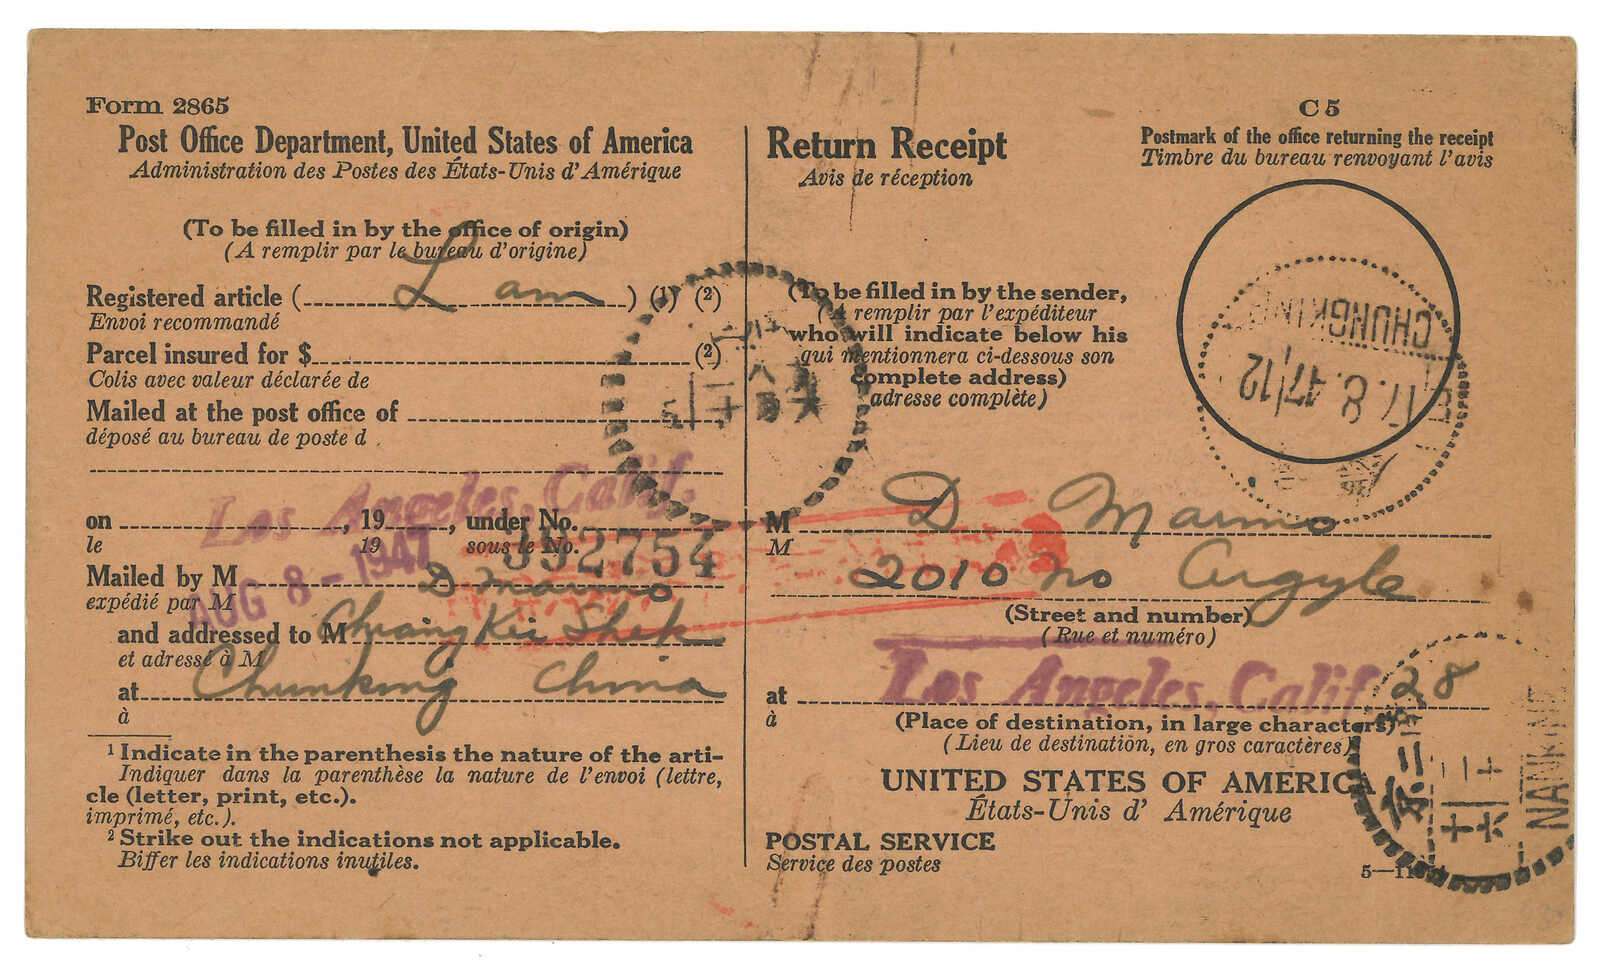 Form 2865
Post Office Department, United States of America
Administration des Postes des États-Unis d'Amérique
(To be filled in by the office of origin)
(A remplir par le bureau d'origine)
Registered article ( L am ) (1) (2)
Envoi recommandé
Parcel insured for $ (2)
Colis avec valeur déclarée de
Mailed at the post office of
déposé au bureau de poste d
Los Angeles, Calif.
on , 19 , under No. 392754
le 19 sous le No.
AUG 8 - 1947
Mailed by M D Marino
expédié par M
and addressed to M Chiang Kei Shek
et adressé à M
at Chunking China
à
1 Indicate in the parenthesis the nature of the arti-
Indiquer dans la parenthèse la nature de l'envoi (lettre,
cle (letter, print, etc.).
imprimé, etc.).
2 Strike out the indications not applicable.
Biffer les indications inutiles.
Return Receipt
Avis de réception
C 5
Postmark of the office returning the receipt
Timbre du bureau renvoyant l'avis
(To be filled in by the sender,
(A remplir par l'expéditeur
who will indicate below his
qui mentionnera ci-dessous son
complete address)
adresse complète)
CHUNGKING
17.8.47/12
M D Marino
M
2010 no Argyle
(Street and number)
(Rue et numéro)
at Los Angeles, Calif. 28
à
(Place of destination, in large characters)
(Lieu de destination, en gros caractères)
UNITED STATES OF AMERICA
États-Unis d' Amérique
POSTAL SERVICE
Service des postes
NANKING